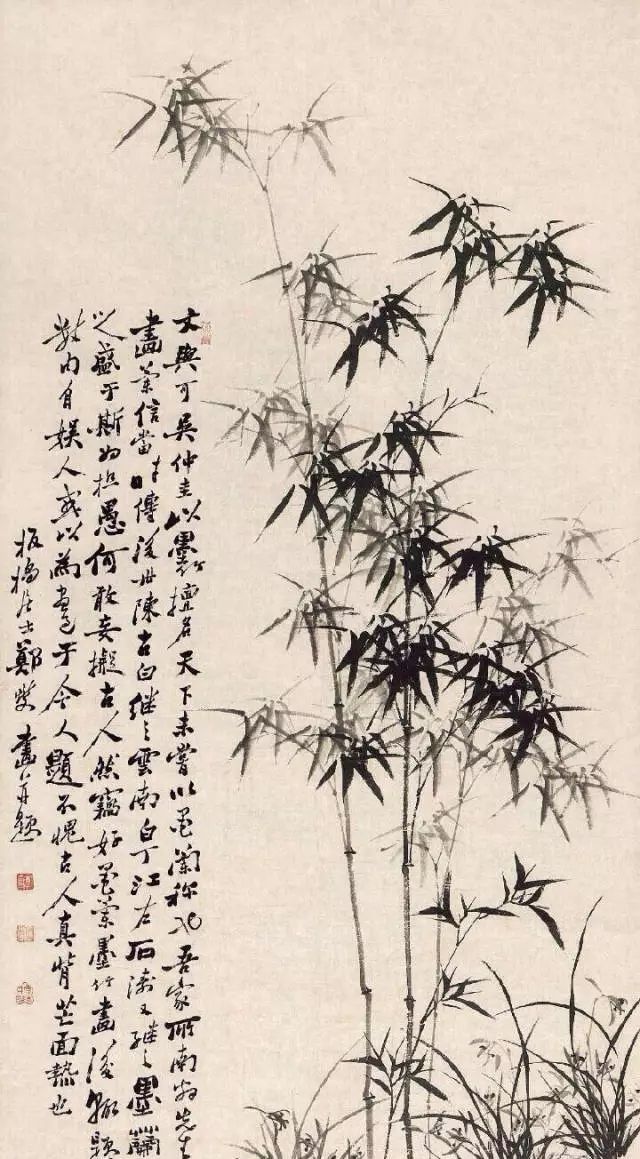 文與可吳仲圭以墨竹擅名天下未嘗以墨蘭称也吾家所南翁先生
畫蘭信當時傳後世陳古白继之雲南白丁江左石濤又继之墨蘭
之盛于斯为極愚何敢妄擬古人然竊好墨蘭墨竹畫後輒題
自娱人或以為畫于今人題不愧古人真背芒面熱也
板橋居士鄭燮畫并題